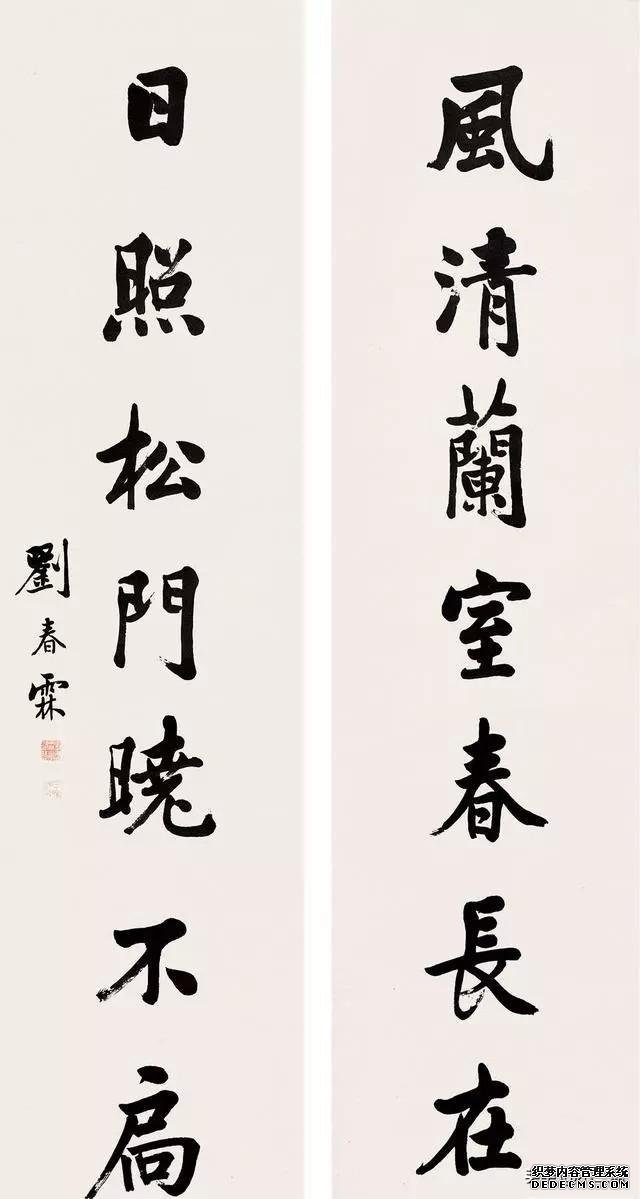 風清蘭室春長在
日照松門曉不扃
劉春霖
织梦内容管理系统
DEDECMS.COM